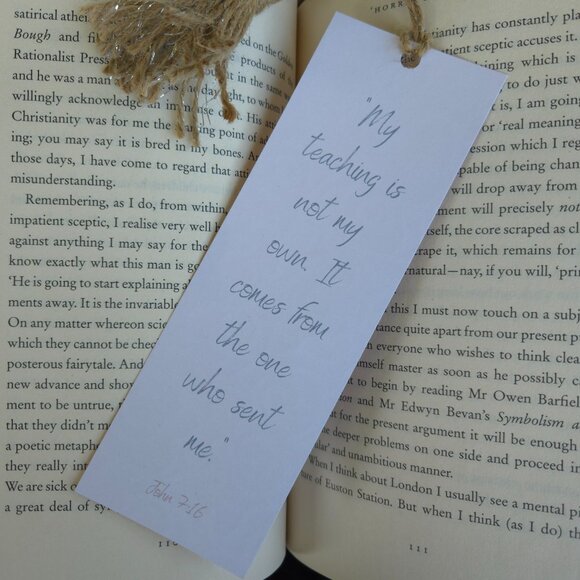 satirical athe
Bough and fi
Rationalist Pres
and he was a man
willingly acknowledge an
Christianity was for me the
ing; you may say it is bred in my bones. An
those days, I have come to regard that atti
misunderstanding.
Remembering, as I do, from within,
impatient sceptic, I realise very well h
against anything I may say for the
know exactly what this man is go
'He is going to start explaining a
ments away. It is the invariable
On any matter whereon scie
which they cannot be chec
posterous fairytale. And
new advance and show
ment to be untrue,
that they didn't m
a poetic metapho
they really int
We are sick o
a great deal of sy
"My
teaching is
not my
own. It
comes from
the one
who sent
me."
John 7:16
'HORR
ristianity has constantly pla
sceptic accuses it.
ing which is
to do just w
is, I am going
or 'real meaning
ession which I reg
pable of being chan
will drop away from
ment will precisely not
self, the core scraped as cl
rape it, which remains for
natural—nay, if you will, 'prim
this I must now touch on a subj
tance quite apart from our present p
everyone who wishes to think clea
imself master as soon as he possibly c
to begin by reading Mr Owen Barfiel
and Mr Edwyn Bevan's Symbolism a
for the present argument it will be enough
deeper problems on one side and proceed in
ular' and unambitious manner.
When I think about London I usually see a mental pi
ure of Euston Station. But when I think (as I do) th
111